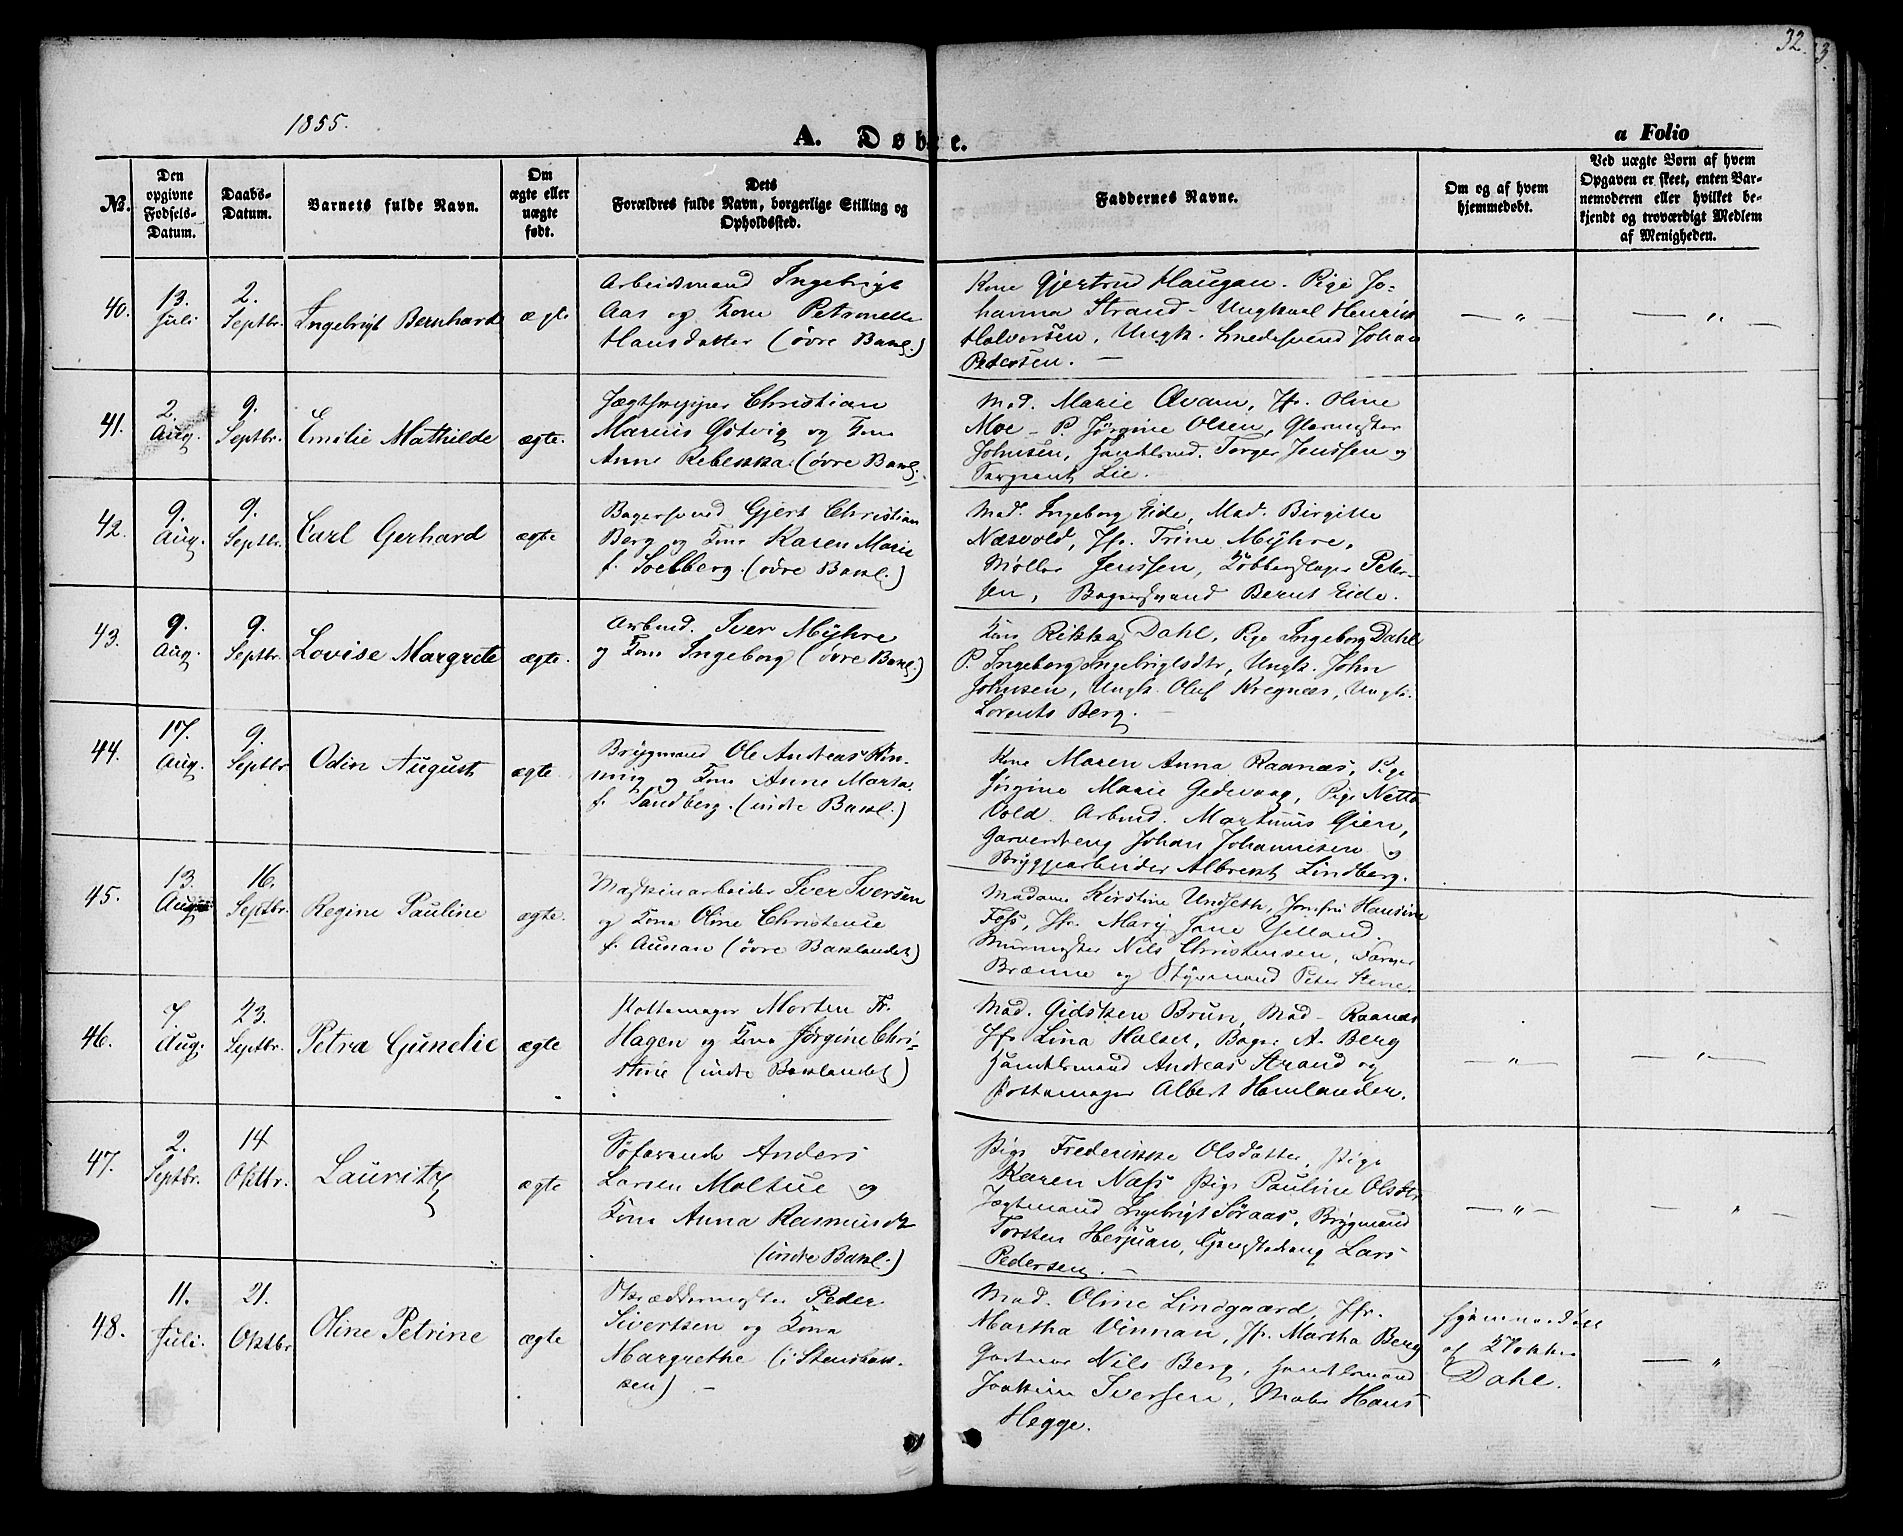 32.
3.
1855.
A. Døbte.
a Folio
No.
Den opgivne Fødsels-Datum.
Daabs-Datum.
Barnets fulde Navn.
Om ægte eller uægte født.
Dets Forældres fulde Navn, borgerlige Stilling og Opholdssted.
Faddernes Navne.
Om og af hvem hjemmedøbt.
Ved uægte Børn af hvem Opgaven er skeet, enten Barnemoderen eller hvilket bekjendt og troværdigt Medlem af Menigheden.
40.
13. Juli
2. Septbr.
Ingebrigt Bernhard
ægte
Arbeidsmand Ingebrigt
Aas og Kone Petronelle
Hansdatter (øvre Bakl.)
Kone Gjertrud Haugan. Pige Jo-
hanna Strand - Ungkarl Henrik
Halvorsen, Ungk. Smedesvend Johan
Pedersen. —
— " —
— " —
41.
2. Aug.
9. Septbr.
Emilie Mathilde
ægte.
Jægtskipper Christian
Marius Gjøtvig og Kone
Anne Rebekka (øvre Bakl.
Mad. Marie Qvam, Jfr. Oline
Moe - P. Jørgine Olsen, Glarmester
Johnsen, Handlsmd. Torger Jenssen og
Sergeant Lie.
42.
9. Aug.
9. Septbr.
Carl Gerhard
ægte
Bagersvend Gjert Christian
Berg og Kone Karen Marie
f. Soelberg. (øvre Bakl.)
Mad. Ingeborg Eide, Mad. Birgitte
Næsvold, Jfr. Trine Myhre,
Møller Jenssen, Kobberslager Peter-
sen, Bagersvend Bernt Eide.
43.
9. Aug.
9. Septbr.
Lovise Margrete
ægte.
Arbmd. Iver Myhre
og Kone Ingeborg (øvre Bakl.)
Kone Rikka Dahl, Pige Ingeborg Dahl
P. Ingeborg Ingebrigtsdtr, Ungk. John
Johnsen, Ungk. Oluf Kregnæs, Ungk.
Lorents Berg. —
44.
17. Aug.
9. Septbr
Odin August
ægte
Brygmand Ole Andreas Røn-
ning og Kone Anne Marta
f. Sandberg. (indre Bakl.)
Kone Maren Anna Raanæs, Pige
Jørgine Marie Gedevaag, Pige Netta
Vold. Arbmd. Martinus Gien,
Garverdreng Johan Johannesen og
Bryggearbeider Albrekt Lindberg.
45.
13. Aug
16. Septbr.
Regine Pauline
ægte.
Maskinarbeider Iver Iversen
og Kone Oline Christense
f. Aunan (øvre Baklandet)
Madame Kirstine Undseth, Jomfru Hansine
Foss, Jfr. Mary Jane Yelland,
Murmester Nils Christensen, Farver
Brænne og Styrmand Peter Stene.
46.
7. Aug.
23. Septbr.
Petra Gunelie
ægte
Pottemager Morten Fr.
Hagen og Kone Jørgine Chri-
stine (indre Baklandet)
Mad. Gidsken Brun, Mad - Raanæs
Jfr Lina Halset, Bager A. Berg
Handlsmand Andreas Strand og
Pottemager Albert Hemlander.
— " —
— " —
47.
2. Septbr.
14 Oktbr.
Lauritz
ægte
Søfarende Anders
Larsen Moltue og
Kone Anna Rasmusdt
(indre Bakl.)
Pige Frederikke Olsdatter, Pige
Karen Næss Pige Pauline Olsdtr
Jægtmand Ingebrigt Søraas, Brygmand
Torsten Herjuan, Lars
Pedersen. —
— " —
— " —
48.
11. Juli.
21. Oktbr
Oline Petrine
ægte
Skræddermester Peder
Sivertsen og Kone
Margrethe (i Stenbak-
ken) —
Mad. Oline Lindgaard, Jfr.
Martha Vinnan, Jfr. Martha Berg
Gartner Nils Berg, Handlsmand
Joakim Iversen, Maler Hans
Hegge.
hjemmedøbt
af Klokker
Dahl.
— " —